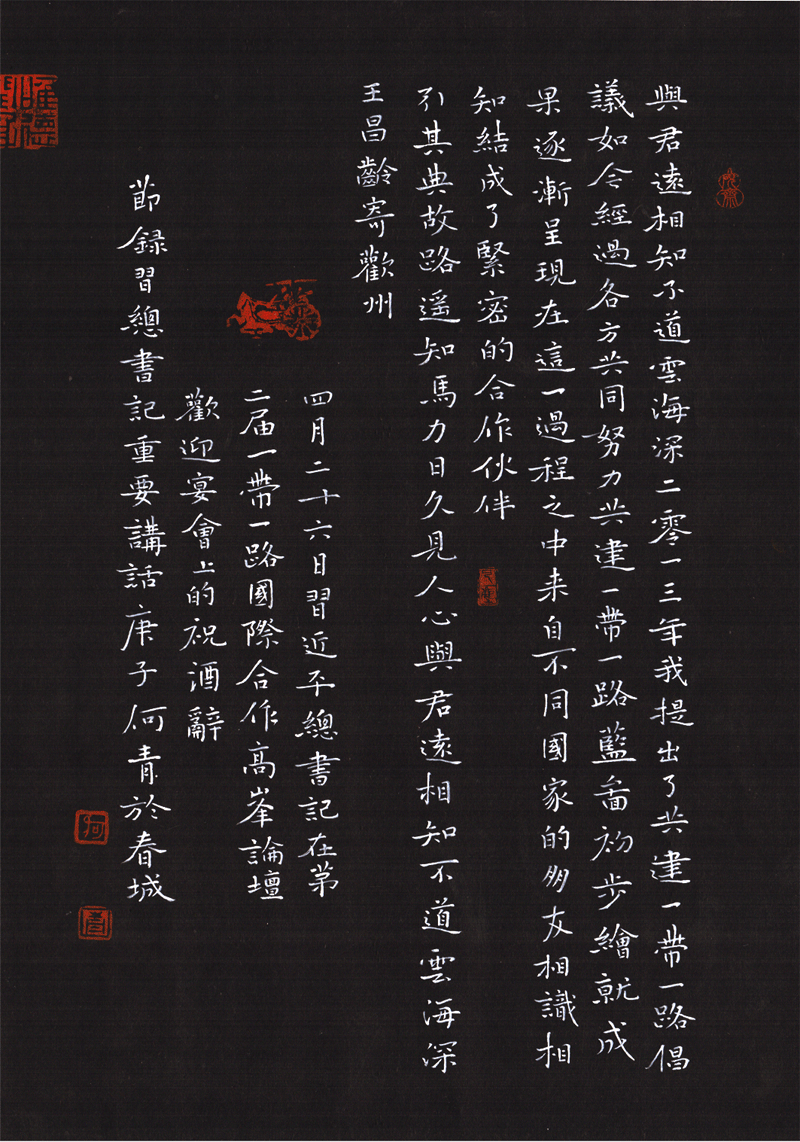 與君遠相知不道雲海深二零一三年我提出了共建一帶一路倡
議如今經過各方共同努力共建一帶一路藍啚初步繪就成
果逐漸呈現在這一過程之中来自不同國家的朋友相識相
知結成了緊密的合作伙伴
引其典故路遥知馬力日久見人心與君遠相知不道雲海深
王昌齡寄歡州
四月二十六日習近平總書記在第
二届一帶一路國際合作高峯論壇
歡迎宴會上的祝酒辭
節録習總書記重要講話庚子何青於春城
何
青